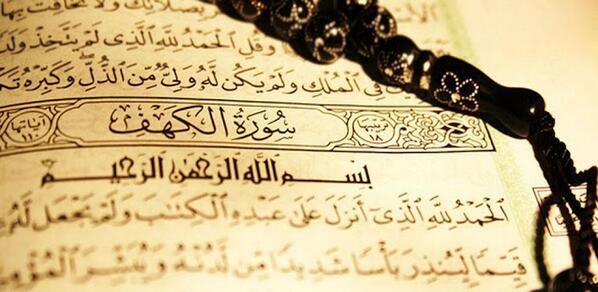 بصلاتك ولا تخافت بها
وقل الحمد لله الذى لم يتخذ ولدا
فى الملك ولم يكن له ولى من الذل وكبره تكـ
ترتيبها ١٨ سورة الكهف آياتها ١١٠
بسم الله الرحمن الرحيم
الحمد لله الذى أنزل على عبده الكتاب ولم يجعل له
قيما لينذر بأسا شديدا من لدنه ويبشر المؤمـ